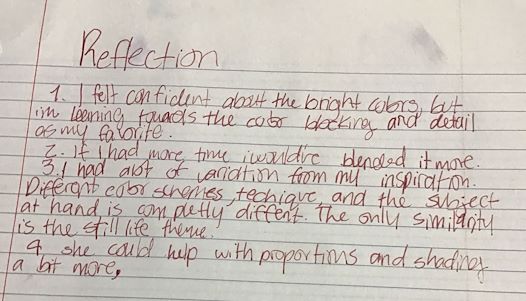 Reflection
1. I felt confident about the bright colors, but
im leaning towards the color blocking and detail
as my favorite.
2. If I had more time i would've blended it more.
3. I had alot of variation from my inspiration.
Different color schemes, techique, and the subject
at hand is completly diffent. The only similarity
is the still life theme.
4. she could help with proportions and shading
a bit more.